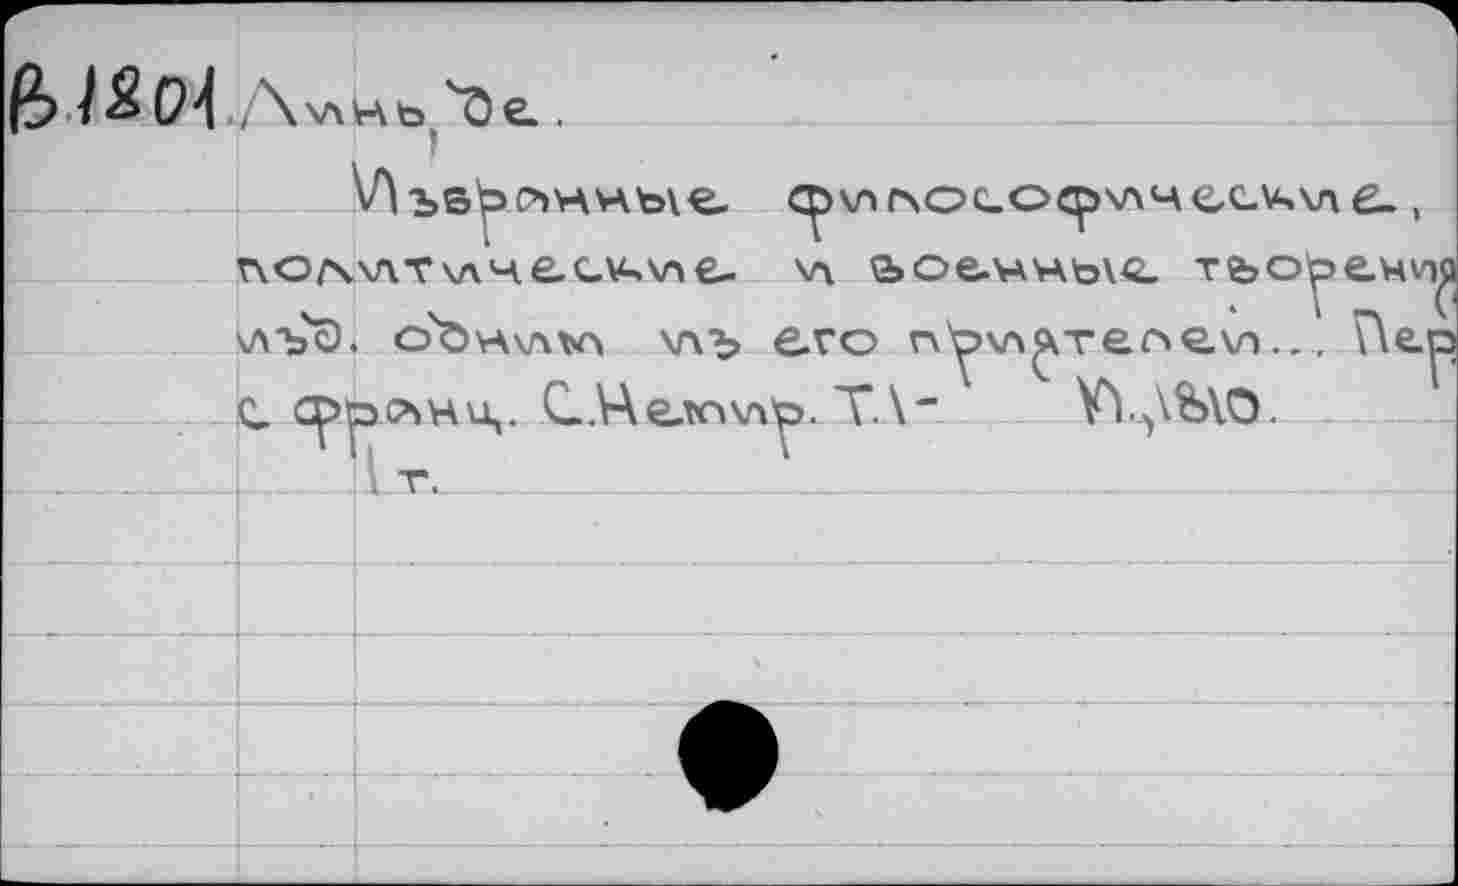 В 1801 Линь, де.
Избранные философические,
политические и военные творения
изд. одним из его приятелей... Пер.
с франц. С. Немир. Т.1- М., 1810.
1 т.